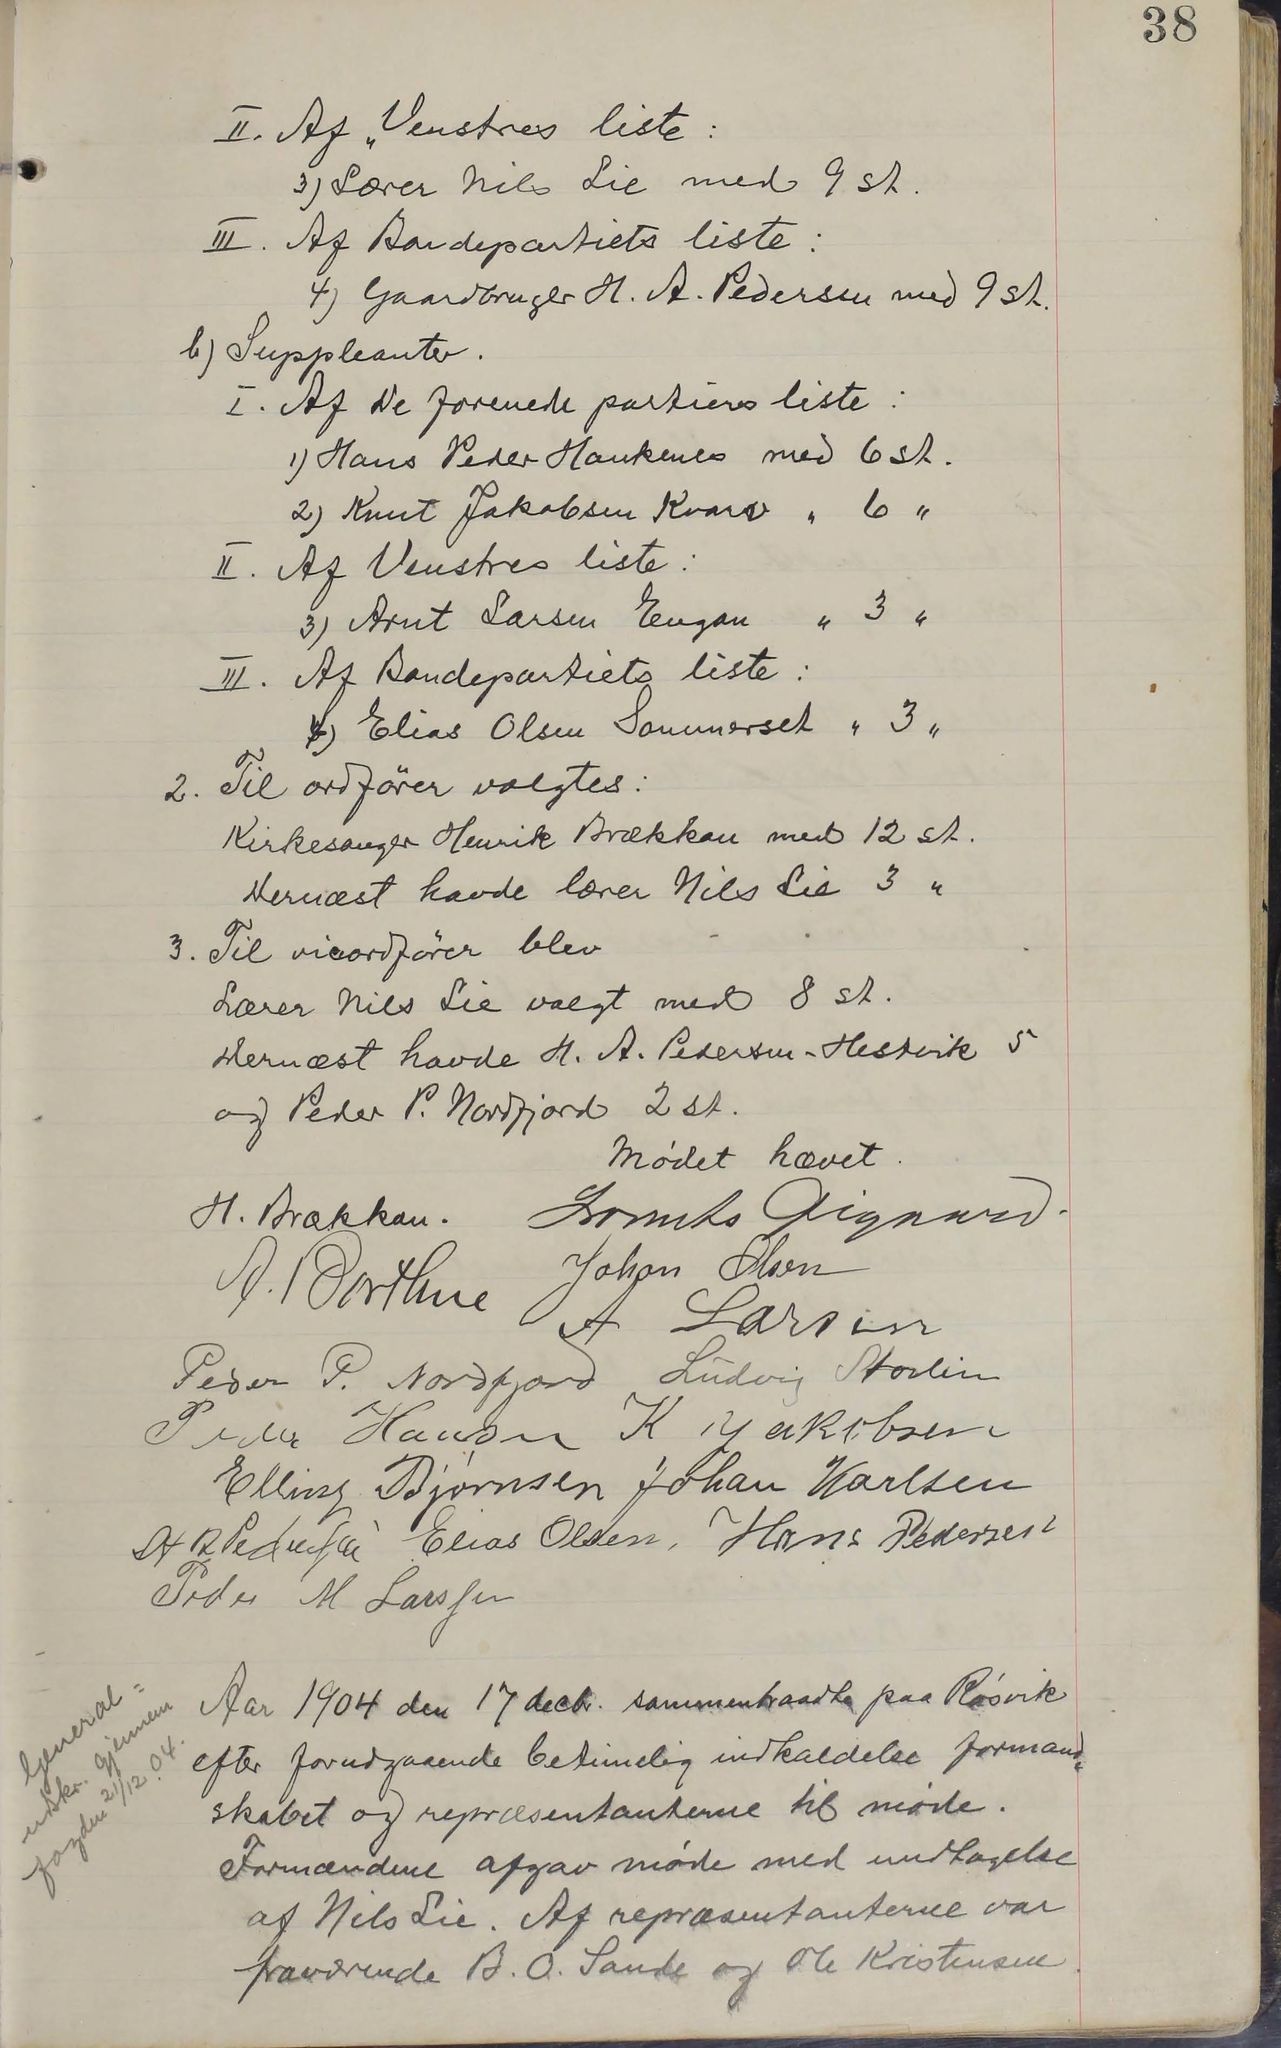 38
II. Af „Venstres liste:
3) Lærer Nils Lie med 9 st.
III. Af Bondepartiets liste:
4) Gaardbruger H. A. Pedersen med 9 st.
b) Suppleanter.
I. Af De forenede partiers liste:
1) Hans Peder Haukenes med 6 st.
2) Knut Jakobsen Kvarv „ 6 „
II. Af Venstres liste:
3) Arnt Larsen Engan „ 3 „
III. Af Bondepartiets liste:
4) Elias Olsen Sommerset „ 3 „
2. Til ordfører valgtes:
Kirkesanger Henrik Brækkan med 12 st.
Dernæst havde lærer Nils Lie 3 „
3. Til viceordfører blev
Lærer Nils Lie valgt med 8 st.
Dernæst havde H. A. Pedersen-Hestvik 5
og Peder P. Nordfjord 2 st.
Mødet hævet.
H. Brækkan. Lorents Aigaard.
A. Borthne Johan Olsen
A Larsen
Peder P. Nordfjord Ludvig Storlien
Peder Hansen K Jakobsen
Elling Bjørnsen Johan Karlsen
H A Pedersen Elias Olsen, Hans Pedersen
Peder M Larssen
General=
utskr. gjennem
fogden 21/12.04.
Aar 1904 den 17 decbr. sammentraadte paa Røsvik
efter forudgaaende betimelig indkaldelse formand„
skabet og repræsentanterne til møde.
Formændene afgav møde med undtagelse
af Nils Lie. Af repræsentanterne var
fraværende B. O. Sande og Ole Kristensen.